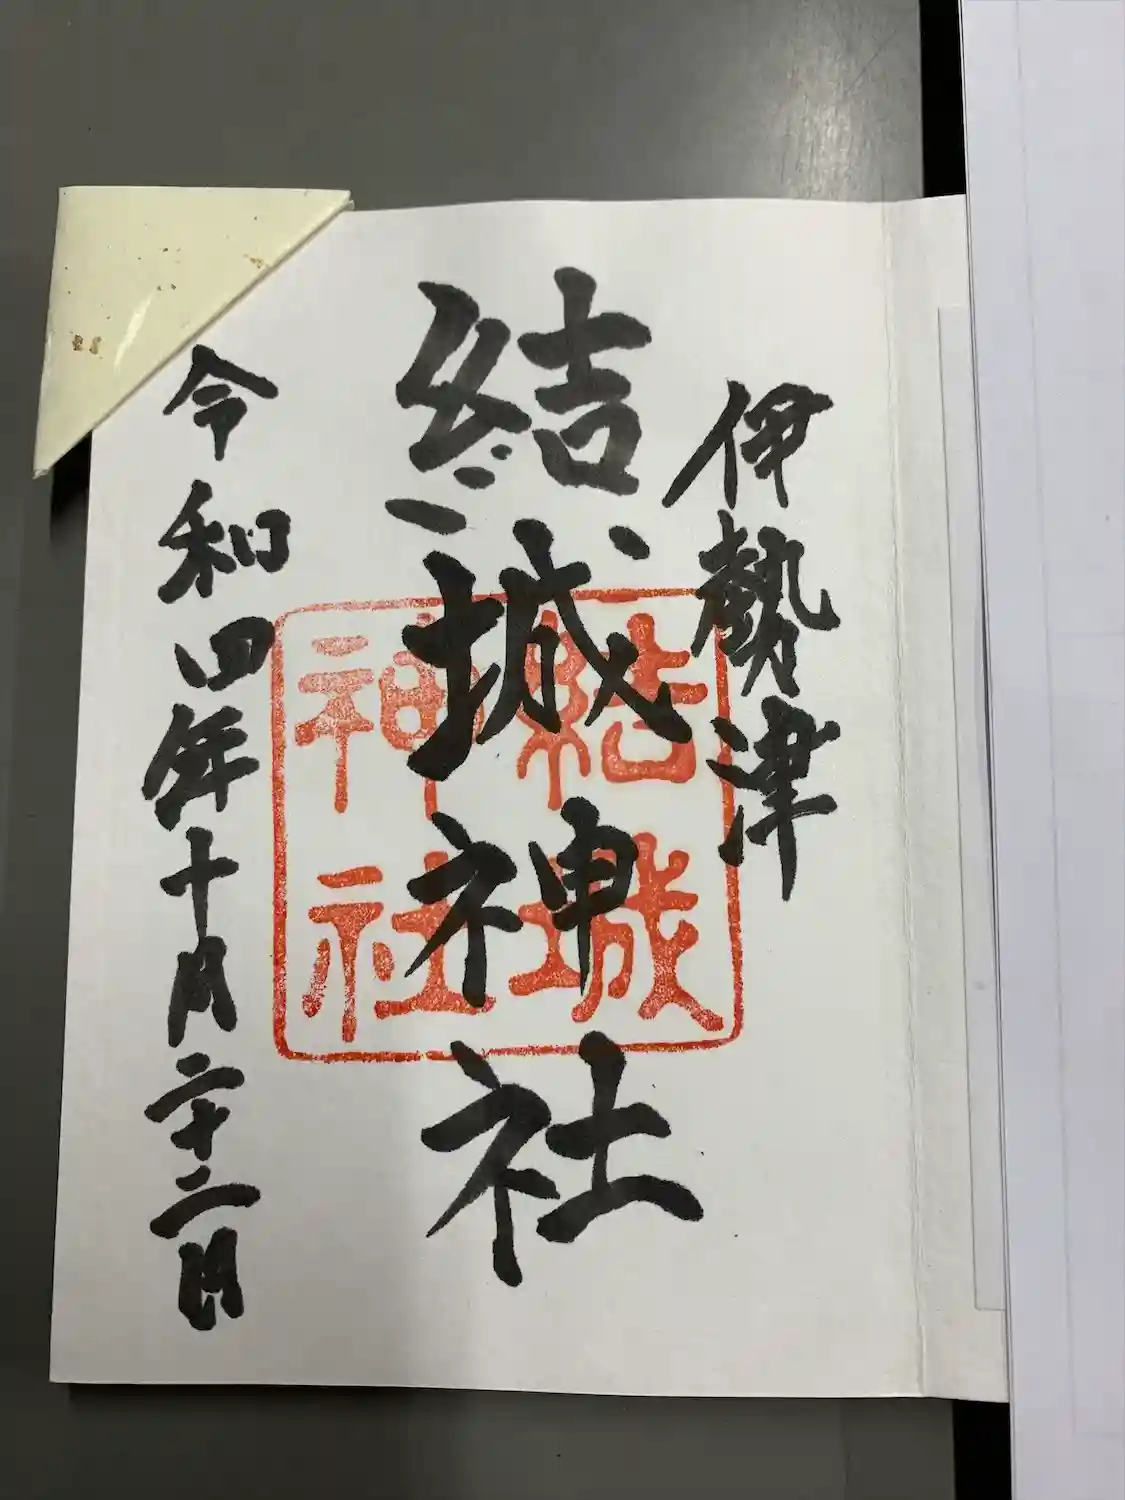 伊勢津
結城神社
結城
神社
令和四年十月二十二日